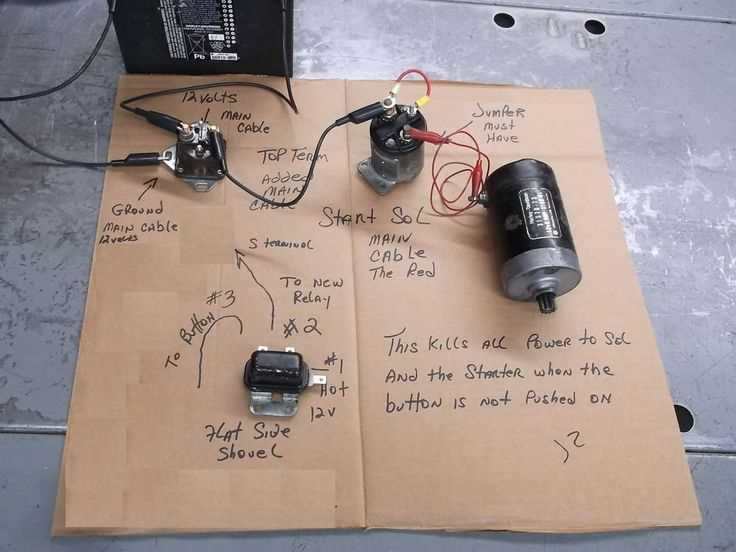 12 volts
MAIN
CABLE
JUMPER
MUST
HAVE
TOP TERM
ADDED
MAIN
CABLE
GROUND
MAIN CABLE
12 volts
START SOL
MAIN
CABLE
The Red
S TERMINAL
TO NEW
Relay
#3
TO BUTTON
#2
#1
HOT
12V
FLAT SIDE
Shovel
THIS KILLS ALL POWER TO SOL
AND the STARTER WHEN the
button is not Pushed on
Pb